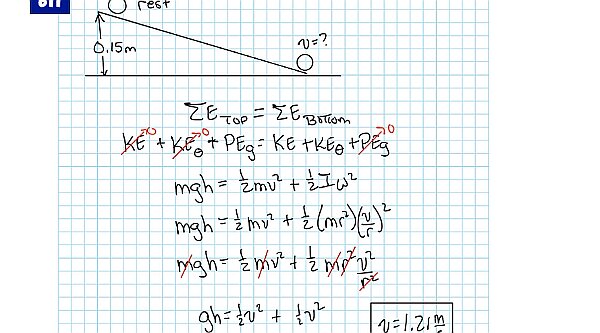 off
rest
0.15m
v=?
ΣE_TOP = ΣE_Bottom
KE→0 + KE_θ→0 + PE_g = KE + KE_θ + PE_g→0
mgh = ½mv² + ½Iω²
mgh = ½mv² + ½(mr²)(v/r)²
mgh = ½mv² + ½mr² v²/r²
gh = ½v² + ½v²
v = 1.21 m/s